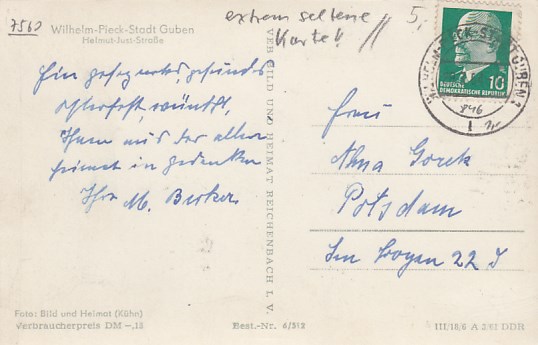 7560
Wilhelm-Pieck-Stadt Guben
Helmut-Just-Straße
extrem seltene
Karte!!
5,
Ein gesegnetes, gesundes
Osterfest, wünscht,
Ihnen aus der alten
Heimat in gedenken
Ihr M.
VEB BILD UND HEIMAT REICHENBACH I. V.
DEUTSCHE
DEMOKRATISCHE REPUBLIK
10
WILHELM-PIECK-STADT GUBEN
Frau
Potsdam
Im Bogen 22 I
Foto: Bild und Heimat (Kühn)
Verbraucherpreis DM -,18
Best.-Nr. 6/512
III/18/6 A 2/61 DDR